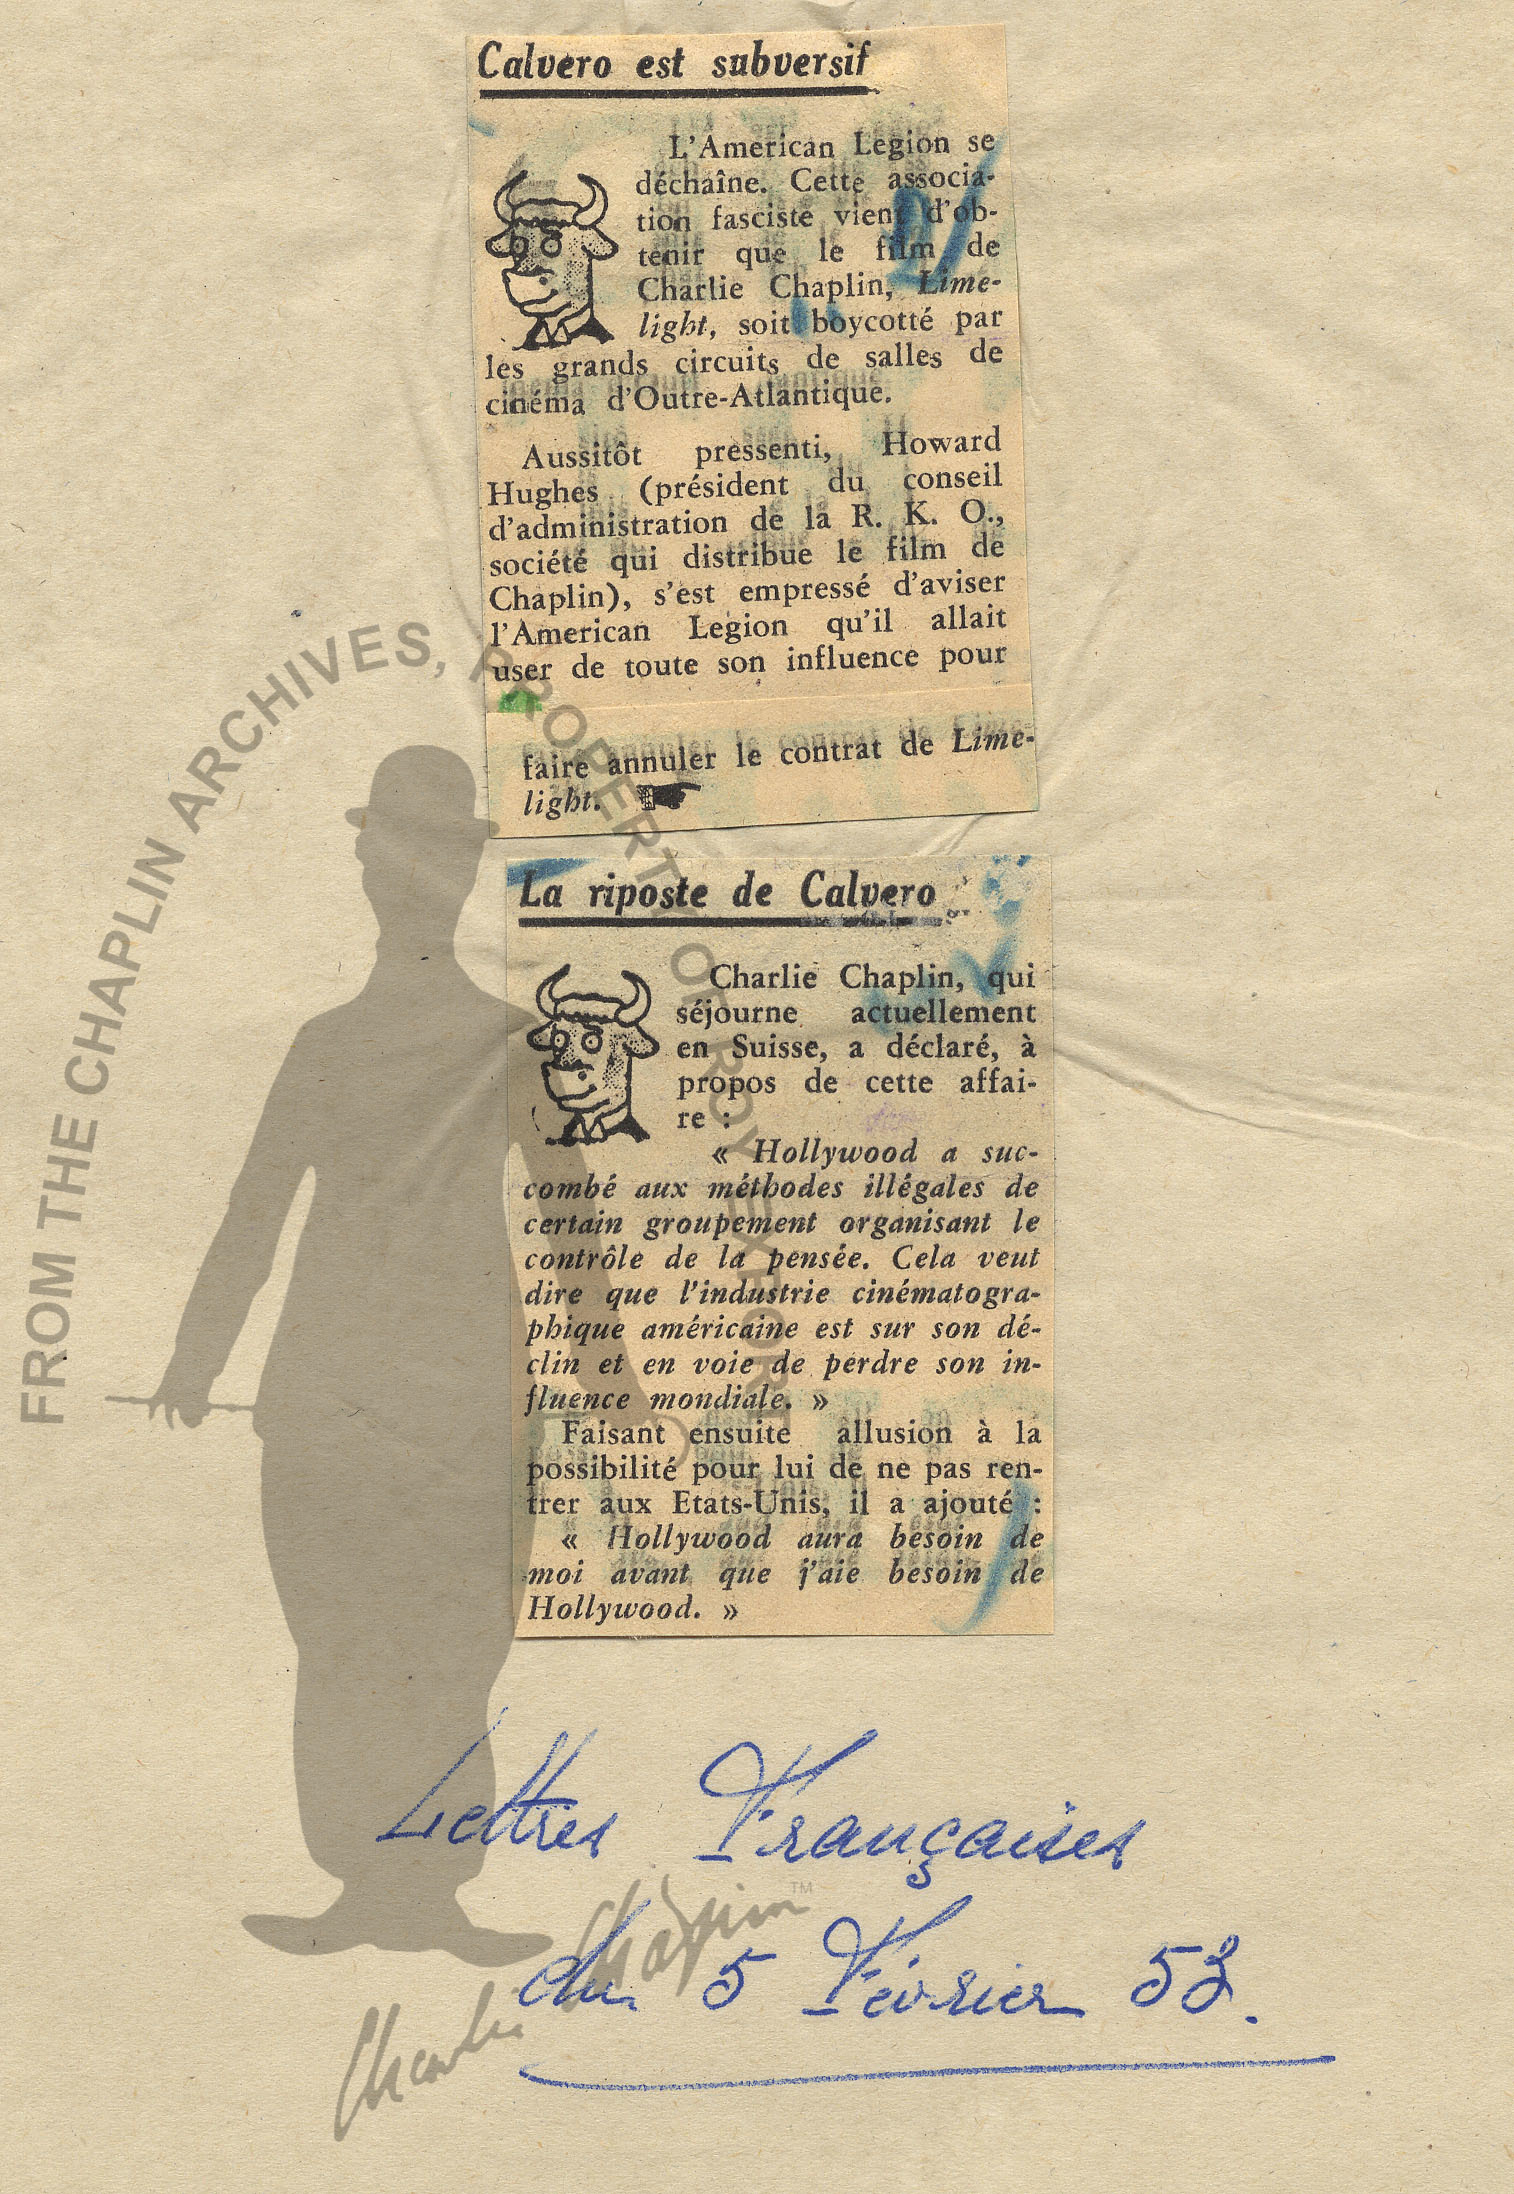 Calvero est subversif
L'American Legion se
déchaîne. Cette associa-
tion fasciste vient d'ob-
tenir que le film de
Charlie Chaplin, Lime-
light, soit boycotté par
les grands circuits de salles de
cinéma d'Outre-Atlantique.
Aussitôt pressenti, Howard
Hughes (président du conseil
d'administration de la R. K. O.,
société qui distribue le film de
Chaplin), s'est empressé d'aviser
l'American Legion qu'il allait
user de toute son influence pour
faire annuler le contrat de Lime-
light.
La riposte de Calvero
Charlie Chaplin, qui
séjourne actuellement
en Suisse, a déclaré, à
propos de cette affai-
re :
« Hollywood a suc-
combé aux méthodes illégales de
certain groupement organisant le
contrôle de la pensée. Cela veut
dire que l'industrie cinématogra-
phique américaine est sur son dé-
clin et en voie de perdre son in-
fluence mondiale. »
Faisant ensuite allusion à la
possibilité pour lui de ne pas ren-
trer aux Etats-Unis, il a ajouté :
« Hollywood aura besoin de
moi avant que j'aie besoin de
Hollywood. »
Lettres Françaises
du 5 Février 53.
FROM THE CHAPLIN ARCHIVES, PROPERTY OF ROY EXPORT
Charlie Chaplin™